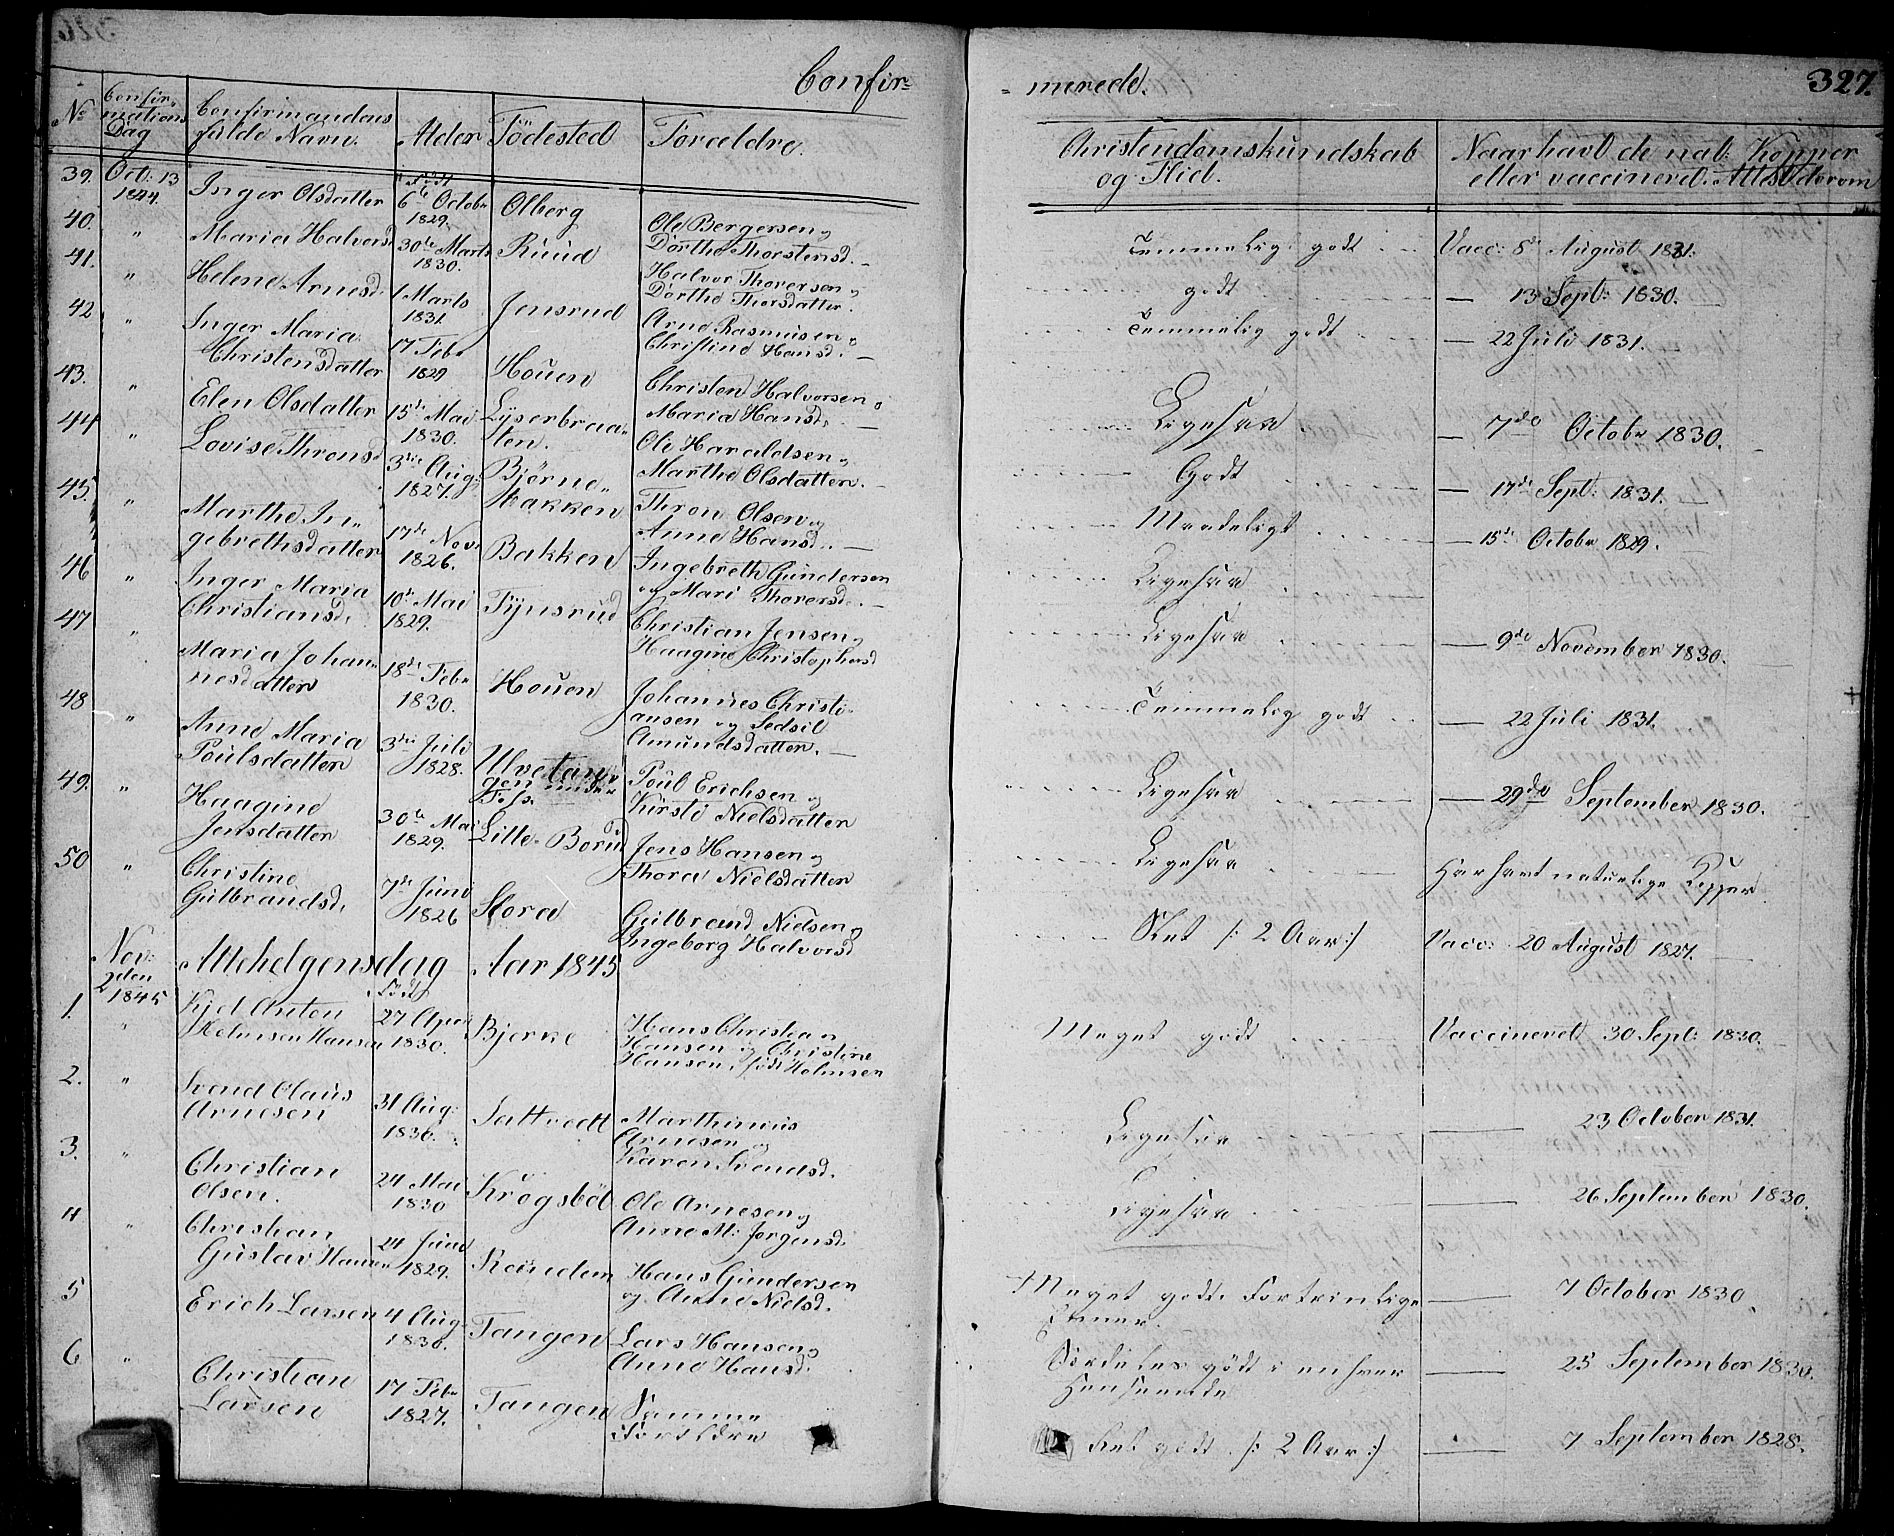 Confir=
= merede.
327.
No
Confir=
mations
Dag
Confirmandens
fulde Navn.
Alder
Födested
Forældre.
Christendomskundskab
og Flid.
Naar havt de nat: Kopper
eller vaccineret. Attest derom
39. Oct: 13
1844.
Inger Olsdatter
Födt
6te Octobr
1829.
Olberg
Ole Bergersen og
Dorthe Thorstensd. —
Temmelig godt
Vacc: 8de August 1831.
40. "
Maria Halvorsd
30te Marts
1830.
Ruud
Halvor Thoresen og
Dorthe Thorsdatter.
godt
— 13 Sept: 1830.
41. "
Helene Arnesd.
1 Marts
1831.
Jensrud
Arne Rasmusen og
Christine Hansd. —
Temmelig godt
— 22 Juli 1831.
42 "
Inger Maria
Christensdatter
17 Febr
1829
Houen
Christen Halvorsen og
Maria Hansd. —
Ligesaa
— 7de Octobr 1830.
43. "
Elen Olsdatter
15de Mai
1830.
Lyserbraa-
ten.
Ole Haraldsen og
Marthe Olsdatter. —
Godt
— 17de Sept: 1831.
44 "
Lovise Thronsd
3die Aug:
1827.
Björne-
bakken
Thron Olsen og
Anne Hansd. —
Maadeligt
— 15de Octobr 1829.
45. "
Marthe In-
gebrethsdatter
17de Nov.
1826.
Bakken
Ingebreth Gundersen
og Mari Thoresd. —
Ligesaa
46 "
Inger Maria
Christiansd.
10de Mai
1829.
Tynsrud
Christian Jensen og
Haagine Christophersd
Ligesaa
— 9de November 1830.
47 "
Maria Johan-
nesdatter
18de Febr
1830.
Houen
Johannes Christi-
ansen og Sedsil
Amundsdatter. —
Temmelig godt
— 22 Juli 1831.
48 "
Anne Maria
Poulsdatter
3die Juli
1828.
Ulvetan-
gen under
Fos.
Poul Erichsen og
Kirsti Nielsdatter
Ligesaa
— 29de September 1830.
49. "
Haagine
Jensdatter
30te Mai
1829.
Lille-Borud
Jens Hansen og
Thora Nielsdatter
Ligesaa
Har havt naturlige Kopper
50 "
Christine
Gulbrandsd.
7de Juni
1826
Hora
Gulbrand Nielsen og
Ingeborg Halvorsd
Slet /: 2 Aar :/
Vacc: 20 August 1827.
Nov:
2den
1845
Allehelgensdag Aar 1845
1. "
Kjel Anton
Holmsen Hansen
Födt
27 April
1830.
Bjerke
Hans Christian
Hansen og Christine
Hansen, född Holmsen
Meget godt
Vaccineret 30 Sept: 1830.
2. "
Svend Olaus
Arnesen
31 Aug:
1830.
Saltvedt
Marthinius
Arnesen og
Karen Svendsd.
Ligesaa
— 23 October 1831.
3. "
Christian
Olsen.
24 Mai
1830
Krogsböl
Ole Arnesen og
Anne M: Jorgensd.
Ligesaa
— 26 September 1830.
4 "
Christian
Gustav Hansen
24 Juni
1829.
Hans Gundersen
og Anne Nielsd.
Meget godt. Fortrinlige
Evner.
— 7 October 1830
5
Erich Larsen
4 Aug.
1830.
Tangen
Lars Hansen og
Anne Hansd.
Særdeles godt i enhver
Henseende
— 25 September 1830.
6 "
Christian
Larsen
17 Febr
1827.
Tangen
Samme
Forældre
Ret godt. /: 2 Aar :/
— 7 September 1828.